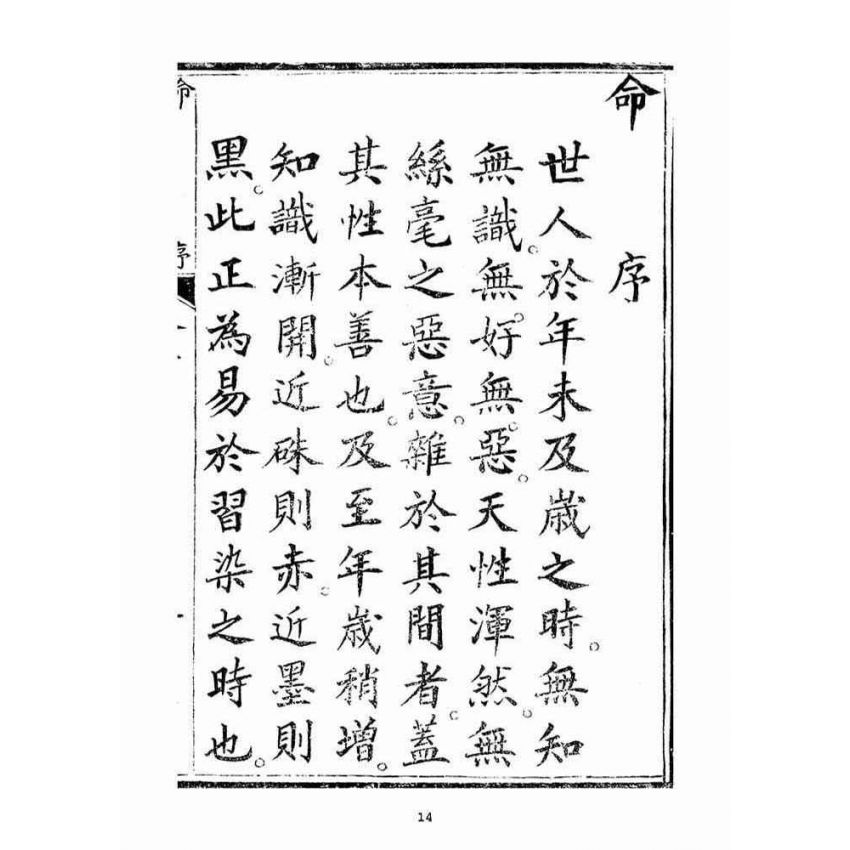 命
序
世人於年未及歲之時。無知
無識。無好。無惡。天性渾然。無
絲毫之惡意。雜於其間者。蓋
其性本善也。及至年歲稍增。
知識漸開。近硃則赤。近墨則
黑。此正為易於習染之時也。
命
序
一
14